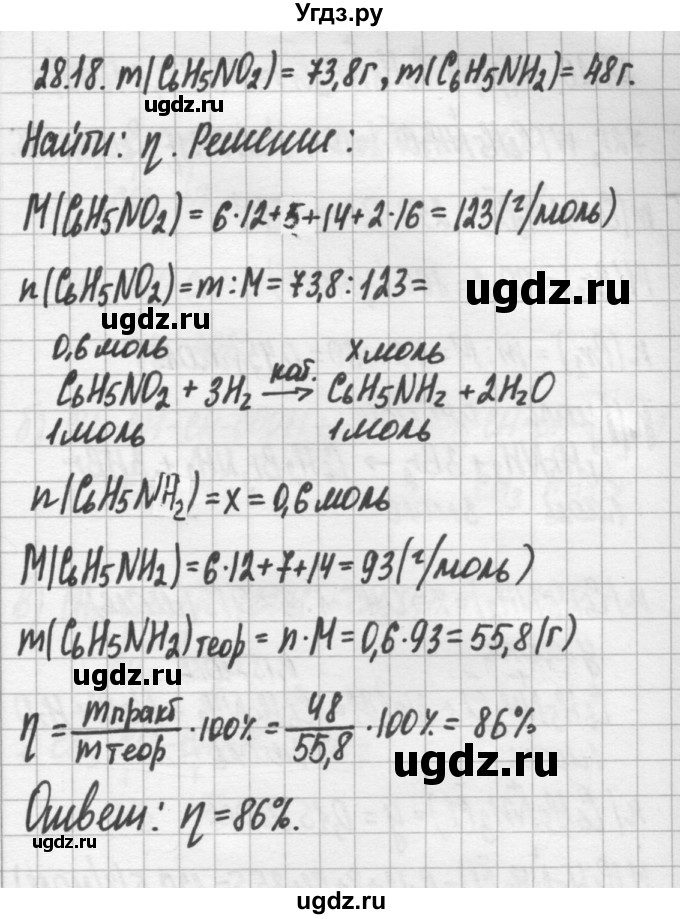 Угдз.ру
28.18. m(C6H5NO2) = 73,8г, m(C6H5NH2) = 48г.
ugdz.ru
Найти: η. Решение:
ugdz.ru
M(C6H5NO2) = 6·12+5+14+2·16 = 123(г/моль)
n(C6H5NO2) = m:M = 73,8:123 =
ugdz.ru
ugdz.ru
0,6 моль x моль
C6H5NO2 + 3H2 —кат.→ C6H5NH2 + 2H2O
1 моль 1 моль
ugdz.ru
ugdz.ru
n(C6H5NH2) = x = 0,6 моль
M(C6H5NH2) = 6·12+7+14 = 93(г/моль)
ugdz.ru
m(C6H5NH2)теор = n·M = 0,6·93 = 55,8(г)
ugdz.ru
η = mпракт/mтеор ·100% = 48/55,8 ·100% = 86%.
ugdz.ru
Ответ: η = 86%.
ugdz.ru
ugdz.ru